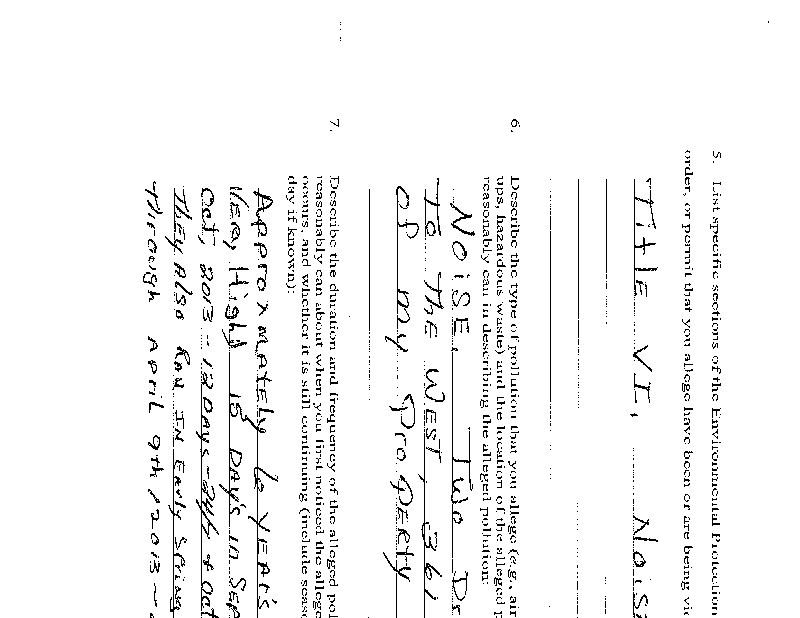 5. List specific sections of the Environmental Protection
order, or permit that you allege have been or are being vio
Title VI, Nois
6. Describe the type of pollution that you allege (e.g., air
ups, hazardous waste) and the location of the alleged p
reasonably can in describing the alleged pollution:
NoiSE, Two Dr
To The WEST, 361
of my ProPERTY
7. Describe the duration and frequency of the alleged pol
reasonably can about when you first noticed the allege
occurs, and whether it is still continuing (include seaso
day if known):
ApproxmatEly 6 YEAr's
Very High 15 DAy's in SEP
Oct, 2013 - 12 DAys - 24/7 Oct
ThEy Also RAN IN EArly Spring
Through APriL 9th, 2013 -